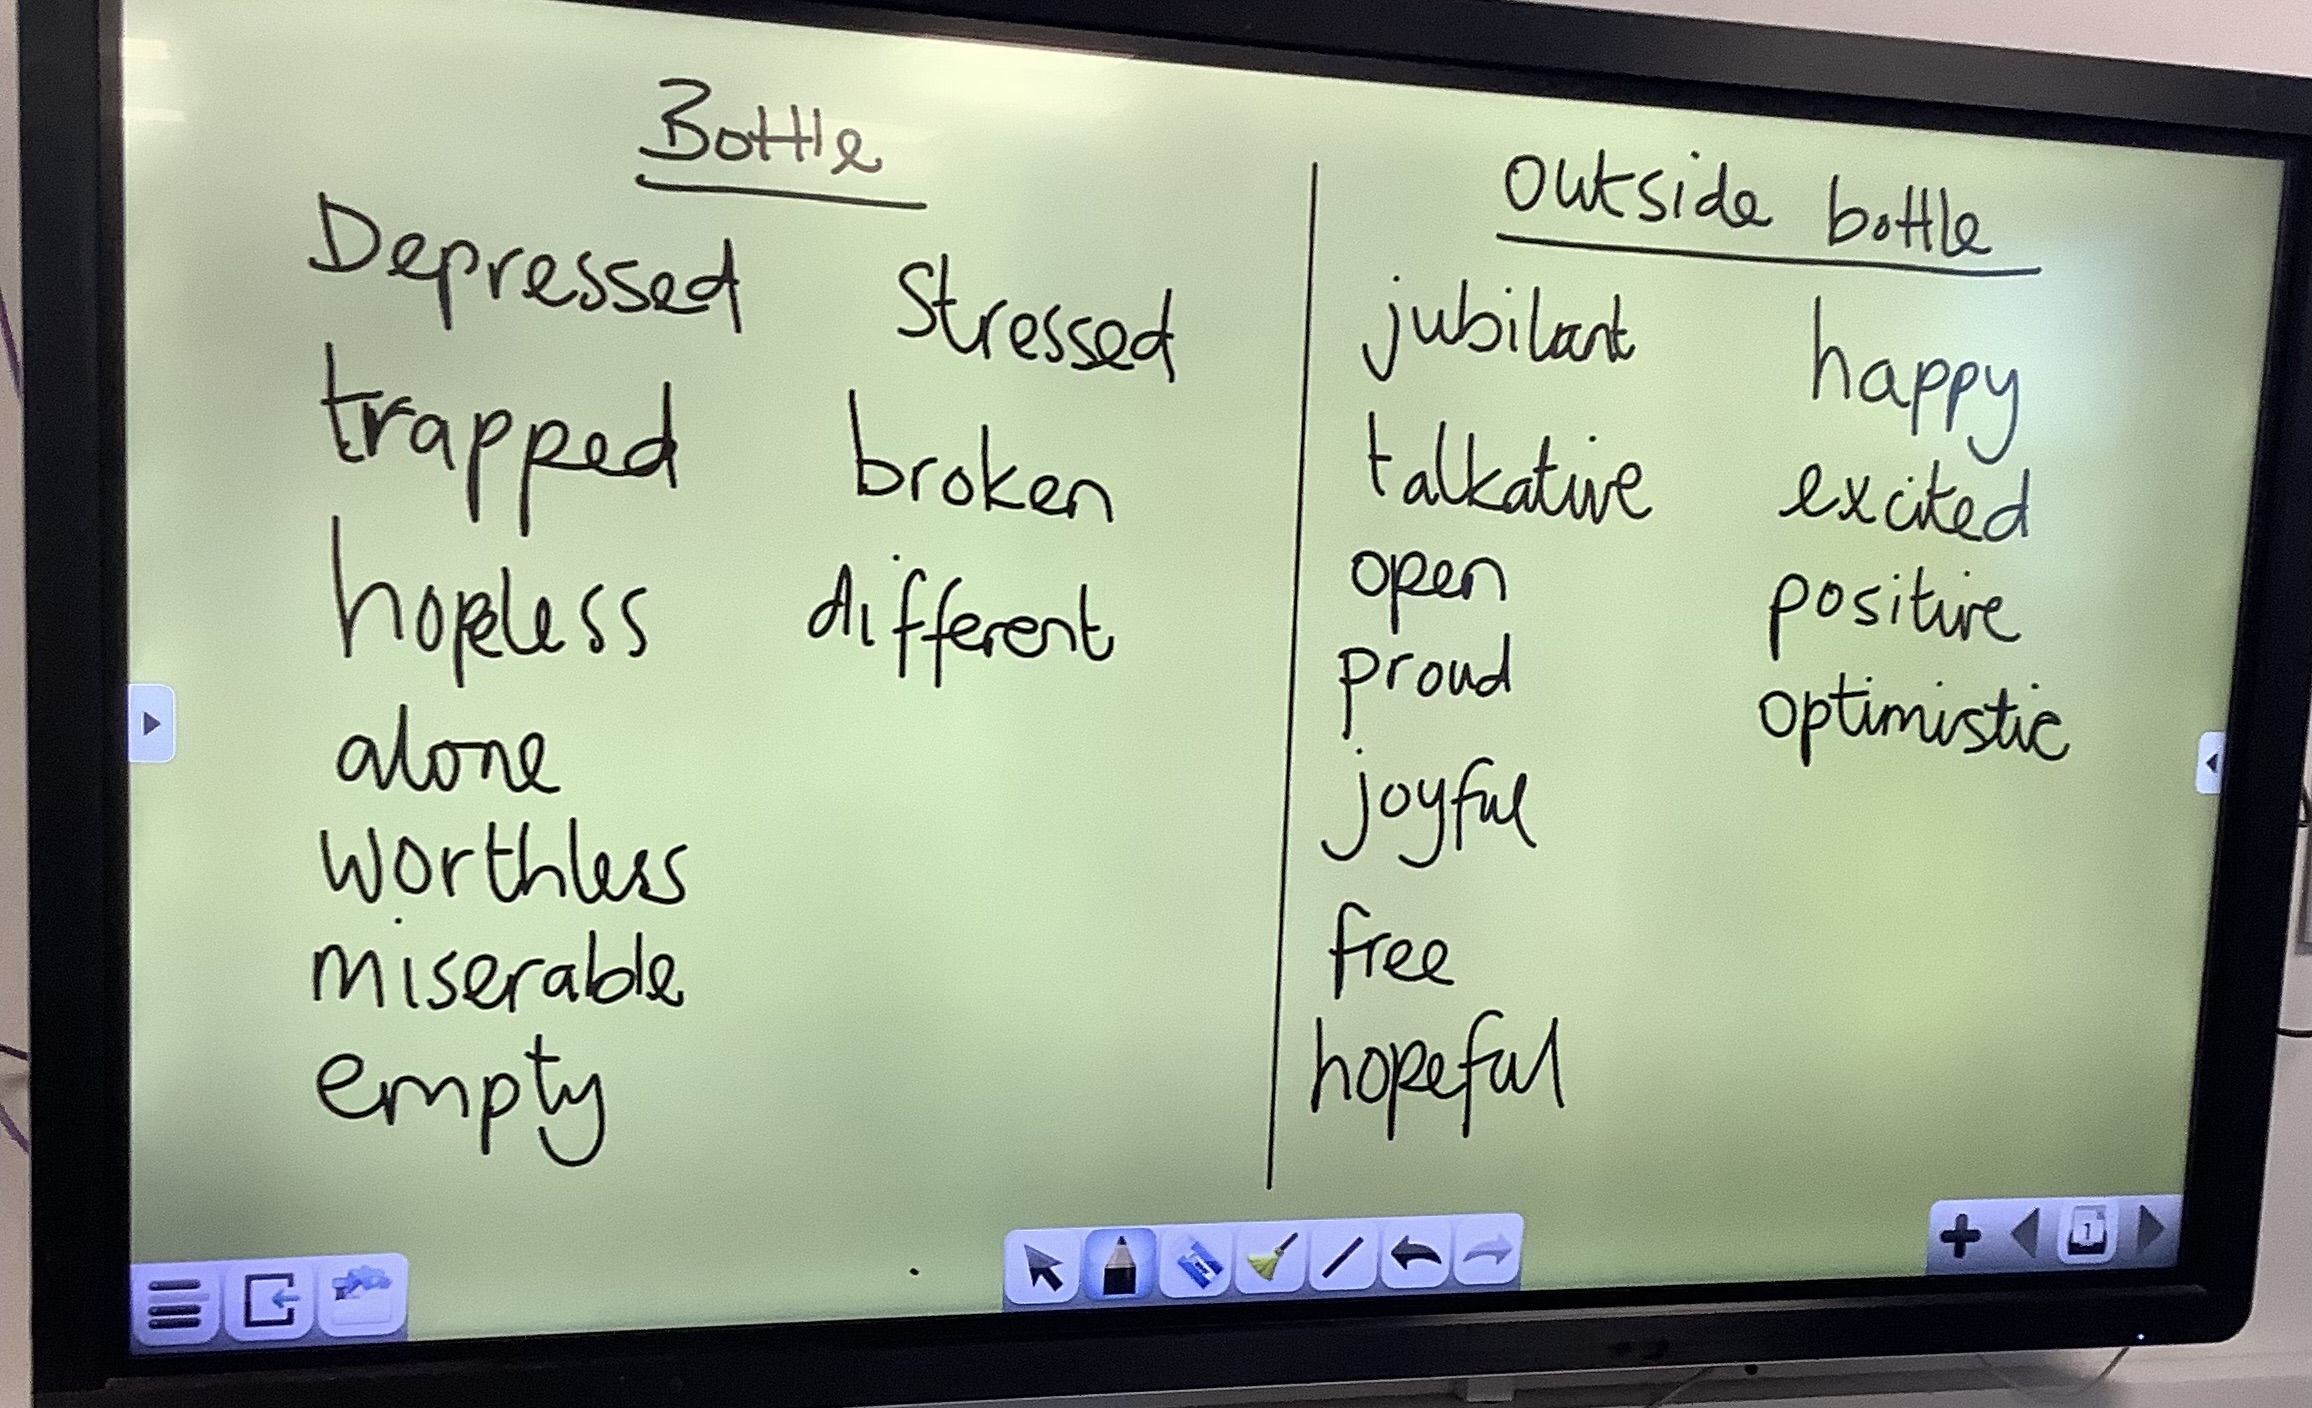 Bottle
Depressed Stressed
trapped broken
hopeless different
alone
worthless
miserable
empty
Outside bottle
jubilant happy
talkative excited
open positive
proud optimistic
joyful
free
hopeful
1